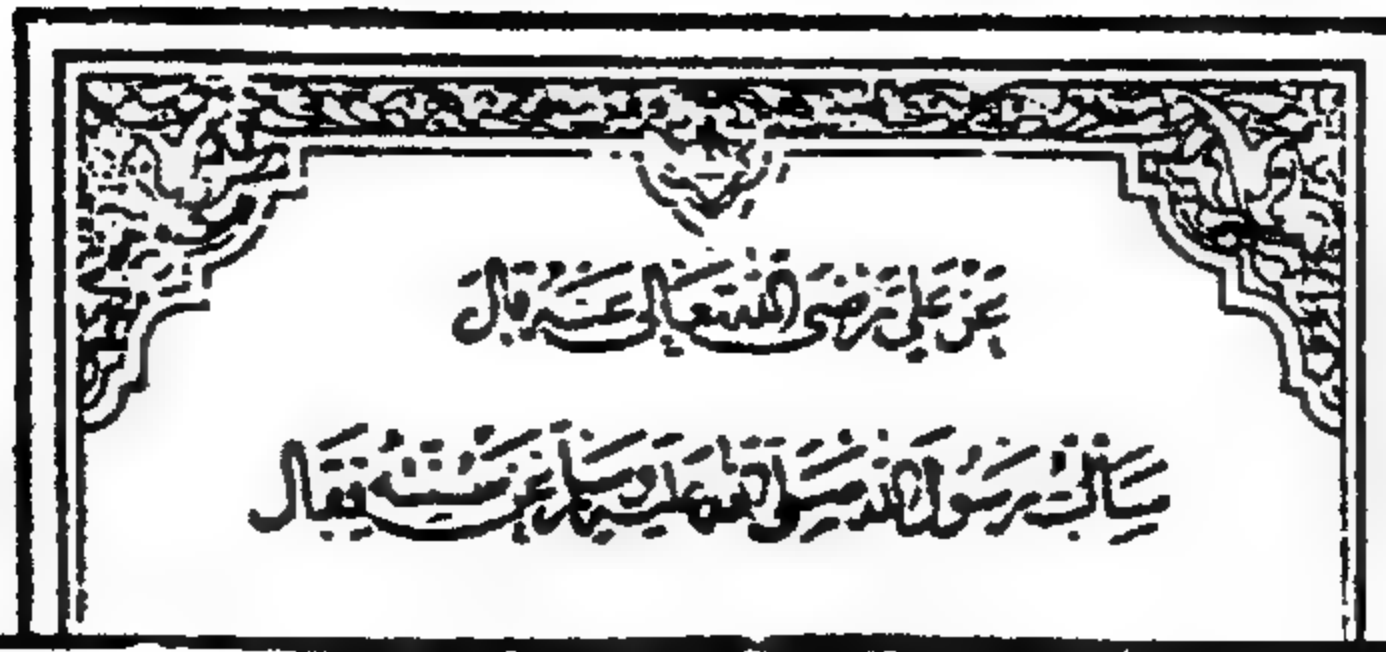 عَنْ عَلِيٍّ رَضِيَ اللهُ تَعَالَى عَنْهُ قَالَ
سَأَلْتُ رَسُولَ اللهِ صَلَّى اللهُ عَلَيْهِ وَسَلَّمَ عَنْ سُنَّتِهِ فَقَالَ